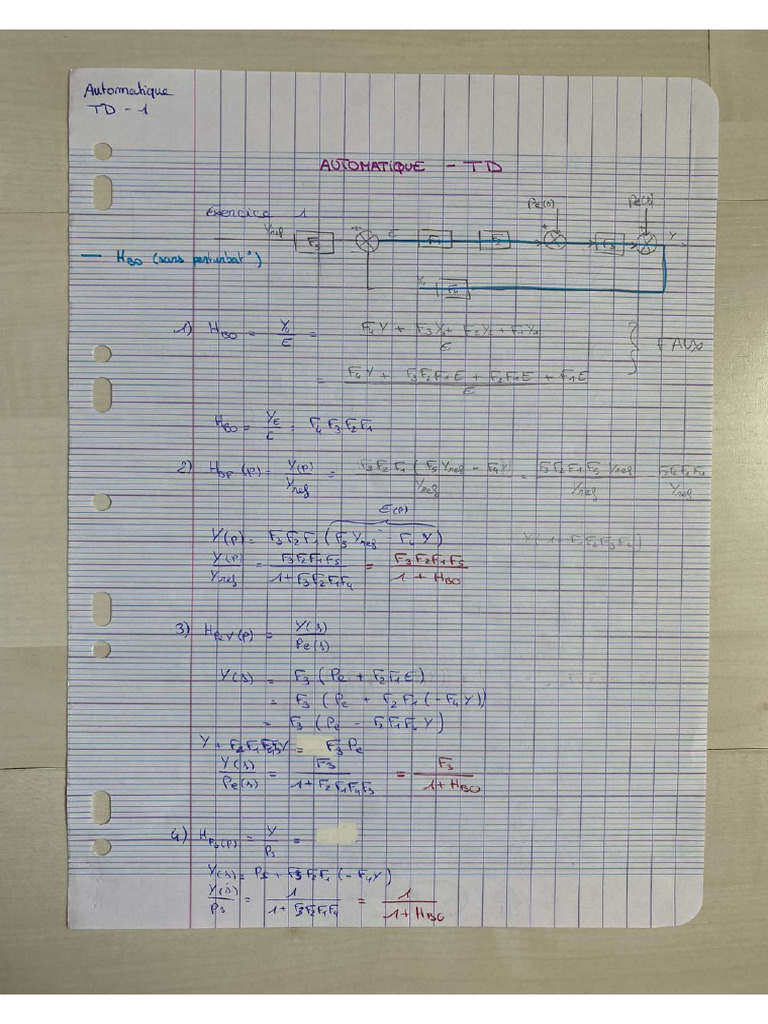 Automatique
TD - 1
AUTOMATIQUE - TD
Exercice 1
Pe(s) Ps(s)
Yref F5 + E F1 F2 + F3 Y
— HBO (sans perturbat°)
F4
1) HBO = Yr/E = (F4Y + F3Y3 + F2Y2 + F1Y1)/E } FAUX
= (F4Y + F3F2F1E + F2F1E + F1E)/E
HBO = YE/E = F4 F3 F2 F1
2) HBF (p) = Y(p)/Yref = F3F2F1 (F5 Yref - F4Y)/Yref = F3F2F1F5 Yref/Yref - F3F2F1F4/Yref
E(p)
Y(p) = F3F2F1 (F5 Yref - F4 Y) Y(1+F1F2F3F4)
Y(p)/Yref = F3F2F1F5/(1+F3F2F1F4) = F3F2F1F5/(1 + HBO)
3) HPeY(p) = Y(s)/Pe(s)
Y(s) = F3 (Pe + F2F1E)
= F3 (Pe + F2F1 (-F4Y))
= F3 (Pe - F2F1F4Y)
Y + F2F1F4F3Y = F3Pe
Y(s)/Pe(s) = F3/(1+F2F1F4F3) = F3/(1+HBO)
4) HPs(p) = Y/Ps =
Y(s) = Ps + F3F2F1 (-F4Y)
Y(s)/Ps = 1/(1+F3F2F1F4) = 1/(1+HBO)